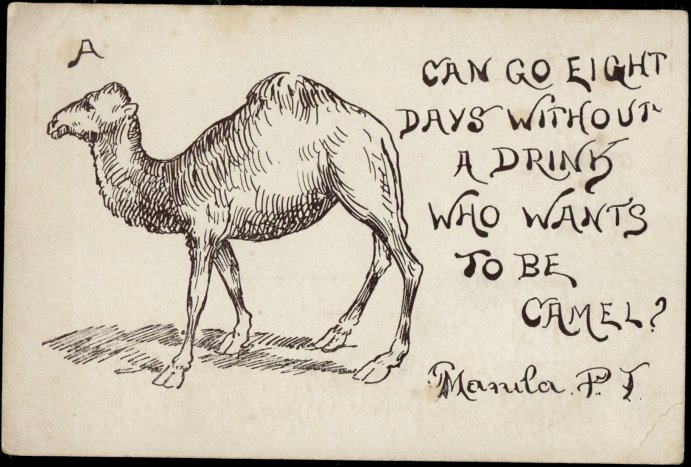 A
CAN GO EIGHT
DAYS WITHOUT
A DRINK
WHO WANTS
TO BE
CAMEL?
Manila. P. I.